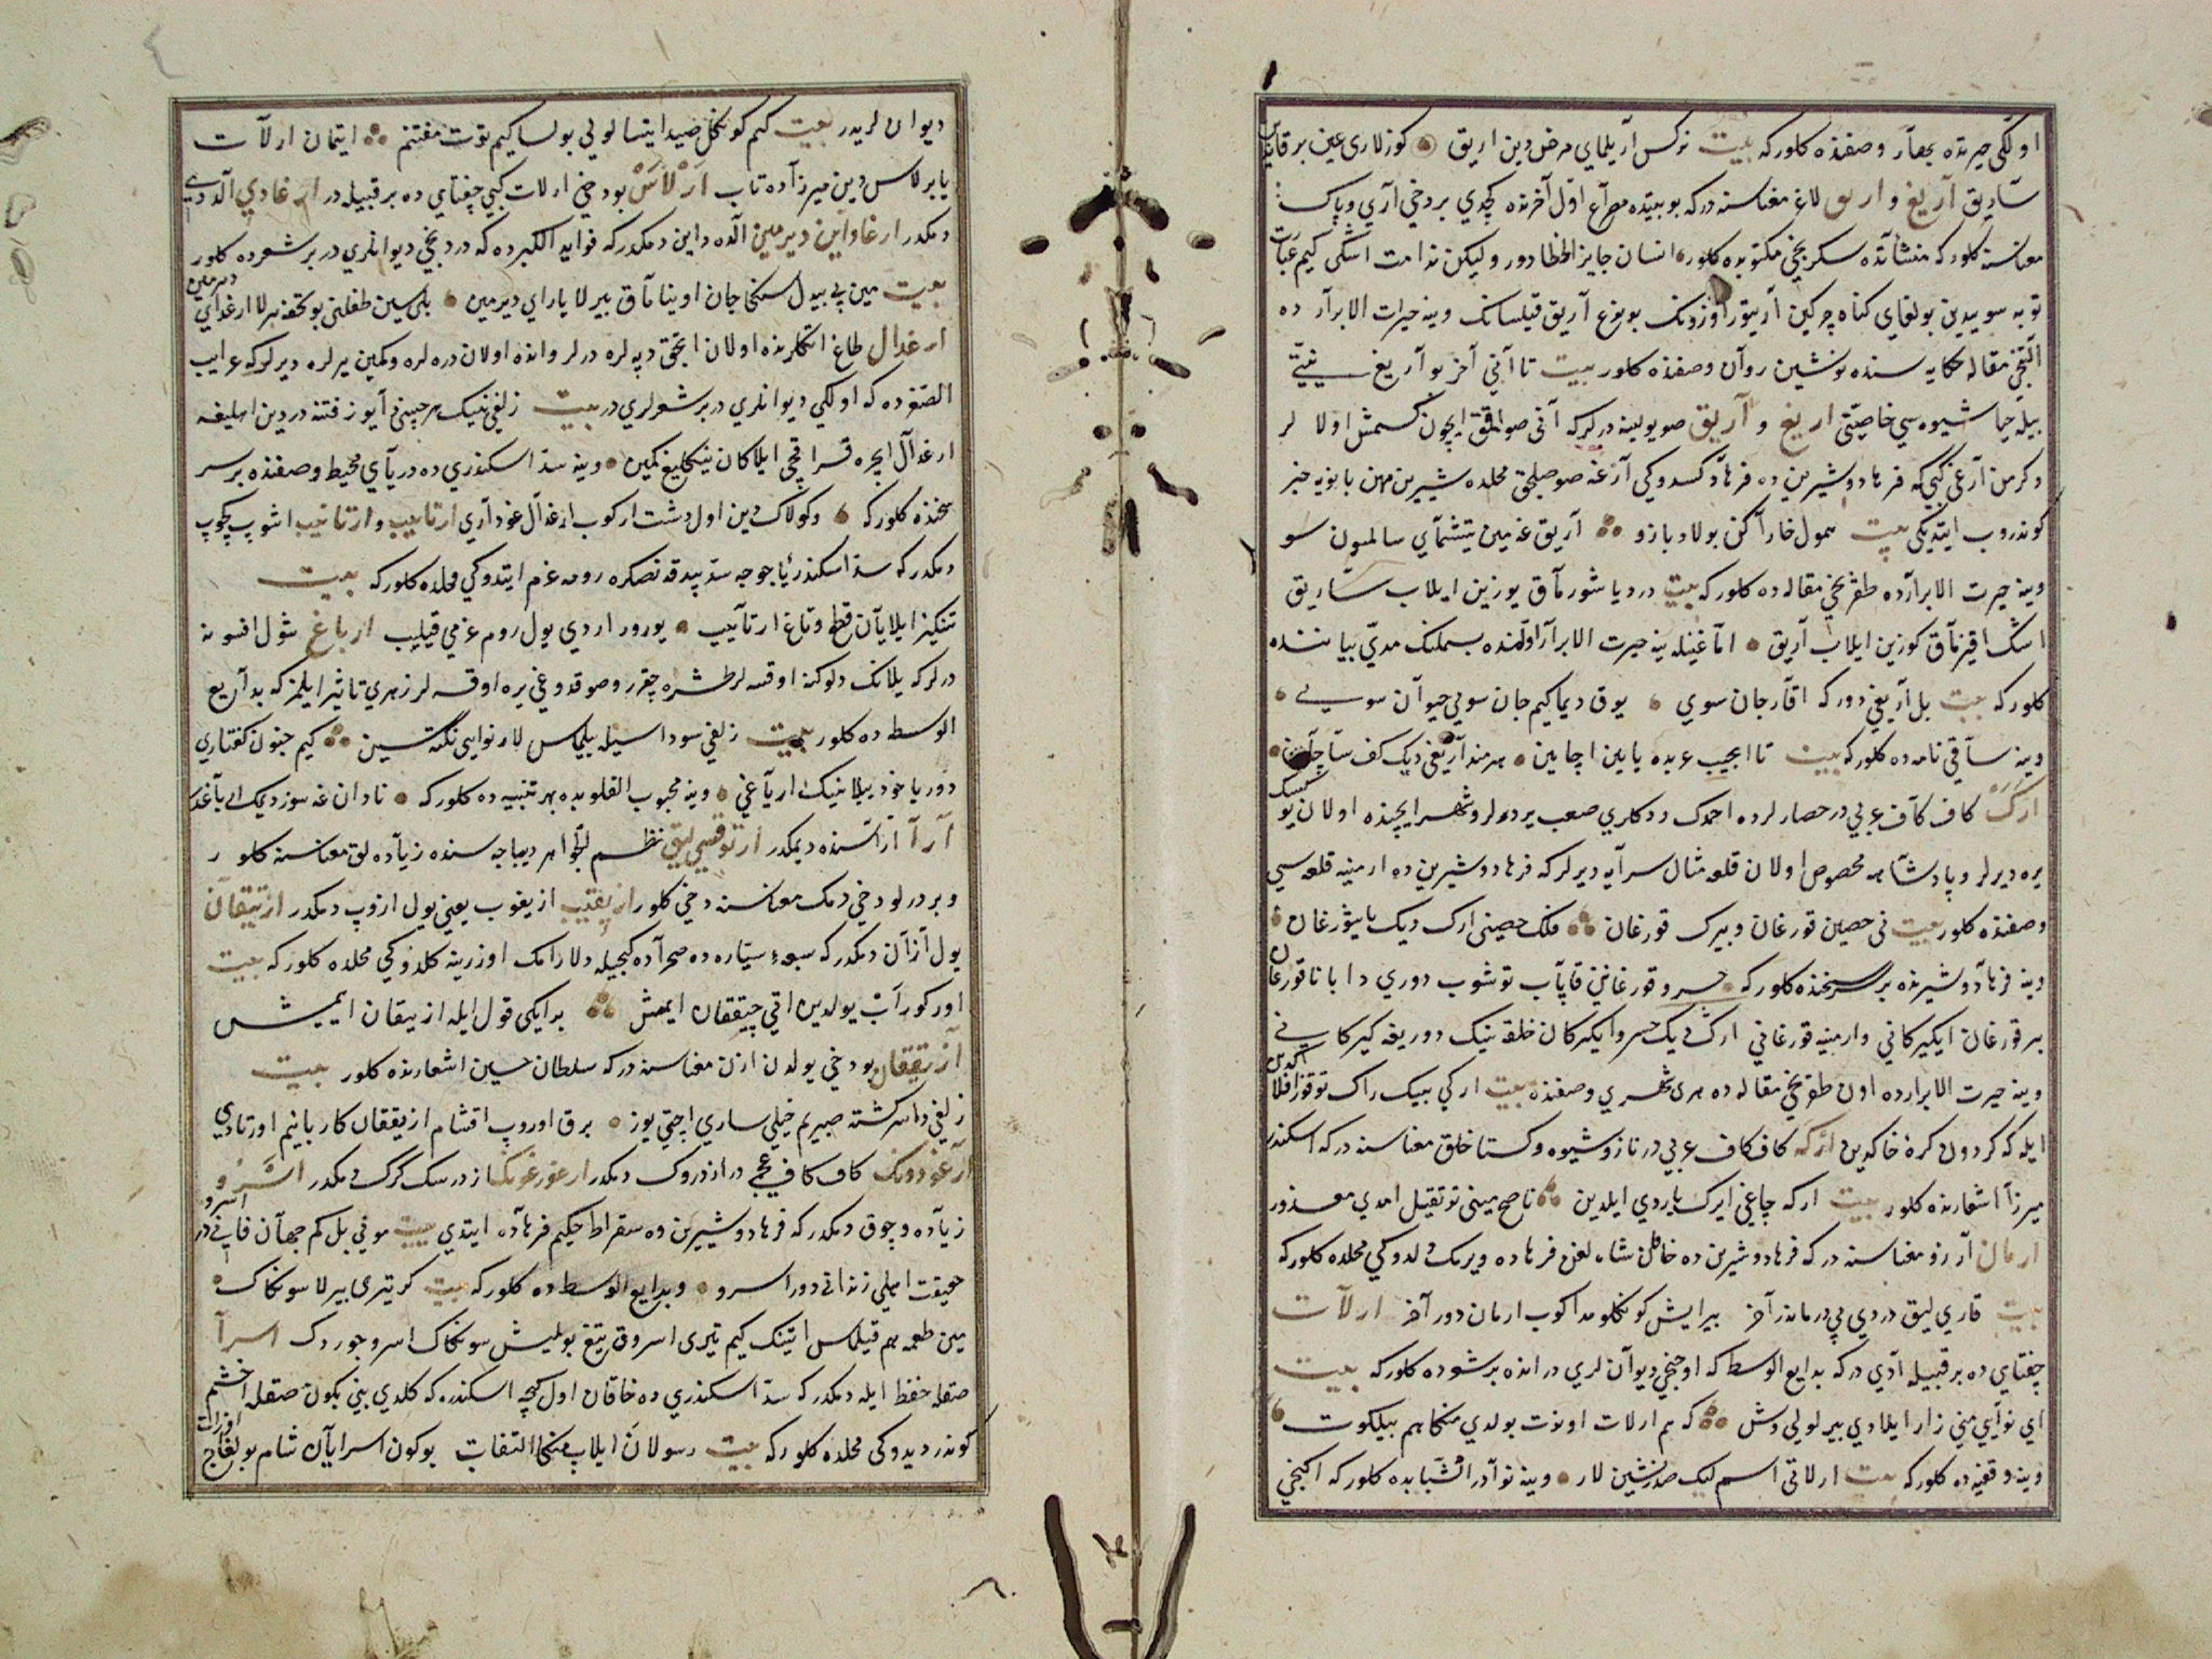 اولکی حیرتده بهار وصفنده کلورکه بیت نرکس آریلمای مرض دین اریق کوزلاری عین یرقاندین
ساریق آریغ و اریق لاغ معناسنه درکه بو بیتده مصراع اول آخرنده کچدی بر دخی آری و پاک
معناسنه کلورکه منشآتده سکزنجی مکتوبده کلور انسان جایز الخطا دور ولیکن ندامت اشکی کیم عبارت
توبه سویدین بولغای کناه چرکین آریتور اوزونک بویوغ آریق قیلسانک وینه حیرت الابرار ده
آلتنجی مقاله حکایه سنده نوشین روان وصفنده کلور بیت تا آنی آخر بو آریغ نیتی
بیله حیا شیوه سی خاصیتی اریغ و آریق صو یولینه درلرکه آنی صو آقمق ایچون کسمش اولا لر
دکرمن آرغی کبی که فرهاد و شیرین ده فرهاد کسدوکی آرغه صو صلمق محلده شیرین مهین بانویه خبر
کوندروب ایتدیکی بیت سمول خارا کن بولاد بازو آریق غه مین یتشمای سالمسون سو
وینه حیرت الابرارده طقزنجی مقاله ده کلورکه بیت دردیا شورماق یوزین ایلاب ساریق
اشک اقیزماق کوزین ایلاب آریق اما غینله ینه حیرت الابرار اولنده بسملنک مدی بیاننده
کلورکه بیت بل آریغی دورکه اقار جان سوی یوق دیماکیم جان سویی حیوان سویی
وینه ساقی نامه ده کلورکه بیت تا اعجیب عربده یایین اچایین هر مند آریغی دیک کف ساچایین
ارک کاف کاف عربی در حصارلرده احمدک ددکلری صعب یرده لر و شهر ایچنده اولان یوکسک
یره دیرلر و پادشاهه مخصوص اولان قلعه مثال سرایه دیرلرکه فرهاد و شیرین ده ارمنیه قلعه سی
وصفنده کلور بیت نی حصین قورغان و بیرک قورغان فلک حصینی ارک دیک یاشورغان
وینه فرهاد و شیرینده بر سر سخنده کلورکه خسرو قورغاننی قاپاب توشوب دوری دا یا تا قورغان
بیر قورغان ایکیرکانی و ارمنیه قورغانی ارکی یک خسرو ایکیرکان خلقه نینک دوریغه کیرکانی
وینه حیرت الابرارده اون طقزنجی مقاله ده هری شهری وصفنده بیت ارکی بییک راک توقوز افلاکدین
ایله که کردون کره خاکدین ارکه کاف کاف عربی در ناز و شیوه و کستاخلق معناسنه درکه اسکندر
میرزا اشعارنده کلور بیت ارکه چاغی ایرک یاردی ایلدین ناصح مینی توتقیل امدی معذور
ارمان آرزو معناسنه درکه فرهاد و شیرین ده خاقان شاه لغن فرهاده ویرمک لدوکی محلده کلورکه
بیت قاری لیق دردی بی درماندر آخر بیرایش کونکلومدا کوب ارمان دور آخر ارلات
چغتای ده بر قبیله آدی درکه بدایع الوسط که اوچنجی دیوان لری در انده بر شعرده کلورکه بیت
ای نوایی منی زار ایلادی بیر لولی وش که هم ارلات اونوت بولدی منکا هم بیلکوت
وینه وقفیه ده کلورکه بیت ارلاتی اسم لیک صدرنشین لار وینه نوادر الشبابده کلورکه ایکنجی
دیوان لریدر بیت کیم کونکل صید ایتسا لولی بولسا کیم توت مغتنم ایتمان ارلات
یا برلاس دین میرزاده تاب ارلاس بو دخی ارلات کبی چغتای ده بر قبیله در ارغادی آلدادی
دیمکدر ارغاداین دیرمین آلده داین دیمکدرکه فواید الکبرده که دردنجی دیوانلری در بر شعرده کلور
بیت مین بی بیدل سنکا جان اوینا ماق بیرلا یارای دیرمین بلی سین طفلنی بو تحفه بیرلا ارغدای دیرمین
ارغدال طاغ اتکلرنده اولان الچق دپه لره درلر و انده اولان دره لره و کمین یرلره دیرلرکه غرایب
الصغرده که اولکی دیوانلری در بر شعرلری در بیت زلفی نینک هر چینی آیوز فتنه در دین اهلیغه
ارغدال ایچره قراقچی ایلا کان نینکلیغ کمین وینه سد اسکندری ده دریای محیط وصفنده بر سر
سخنده کلورکه وکولاک دین اول دشت ارکوب ارغدال غودآری ارتاییب و ارتانیب اشوب کچوب
دیمکدرکه سد اسکندر یاجوجه سد یپدقدنصکره رومه عزم ایتدوکی محلده کلورکه بیت
تنکیز ایلا یان قطع و تاغ ارتاییب یورور اردی یول روم عزمی قیلیب ارباغ شول افسونه
درلرکه یلانک دلوکنه اوقسه لر طشره چقر و صوقدوغی یره اوقسه لر زهری تاثیر ایلمزکه بدایع
الوسط ده کلور بیت زلفی سوداسیله بیلماس لار نوایی نکته سین کیم جنون کفتاری
دور یا خود ییلانینک ارباغی وینه محبوب القلوبده بهر تنبیه ده کلورکه نادان غه سوز دیمک ایا غدر
آرا آراسنده دیمکدر ارتوقسی لیق نظم الجواهر دیباجه سنده زیاده لق معناسنه کلور
و بر درلو دخی دیمک معناسنه دخی کلور ازیقیب ازیغوب یعنی یول ازوب دیمکدر ازیققان
یول آزان دیمکدرکه سبعه سیاره ده صحراده کیجیله دلارامک اوزرینه کلدوکی محلده کلورکه بیت
اورکوراب یولدین اقی چیققان ایمش بر ایکی قول ایله ازیققان ایمیش
ازیققان بو دخی یولدن ازن معناسنه درکه سلطان حسین اشعارنده کلور بیت
زلفی دا سرکشته صبیریم خیلی ساری اچتی یوز برق اوروپ اقشام ازیققان کاربانیم اورتادی
ارغودونک کاف کاف عجمی در ازدروک دیمکدر ارغورغونک ازدرسک کرک دیمکدر اسرو
زیاده و چوق دیمکدرکه فرهاد و شیرین ده سقراط حکیم فرهاده ایتدی بیت مونی بل کم جهان فانی در اسرو
حقیقت اهلی زندانی دور اسرو وبدایع الوسط ده کلورکه بیت کریتری بیرلا سونکاک
مین طعمه هم قیلماس ایتینک کیم تیری اسروق تیغ بولمیش سونکاک اسرو جوردک اسرا
صقله حفظ ایله دیمکدرکه سد اسکندری ده خاقان اول کیجه اسکندره که کلدی بینی بکون صقله اخشم
کوندر دیدوکی محلده کلورکه بیت رسولان ایلاب منکا التفات بوکون اسرایان شام بولغاج اوزات